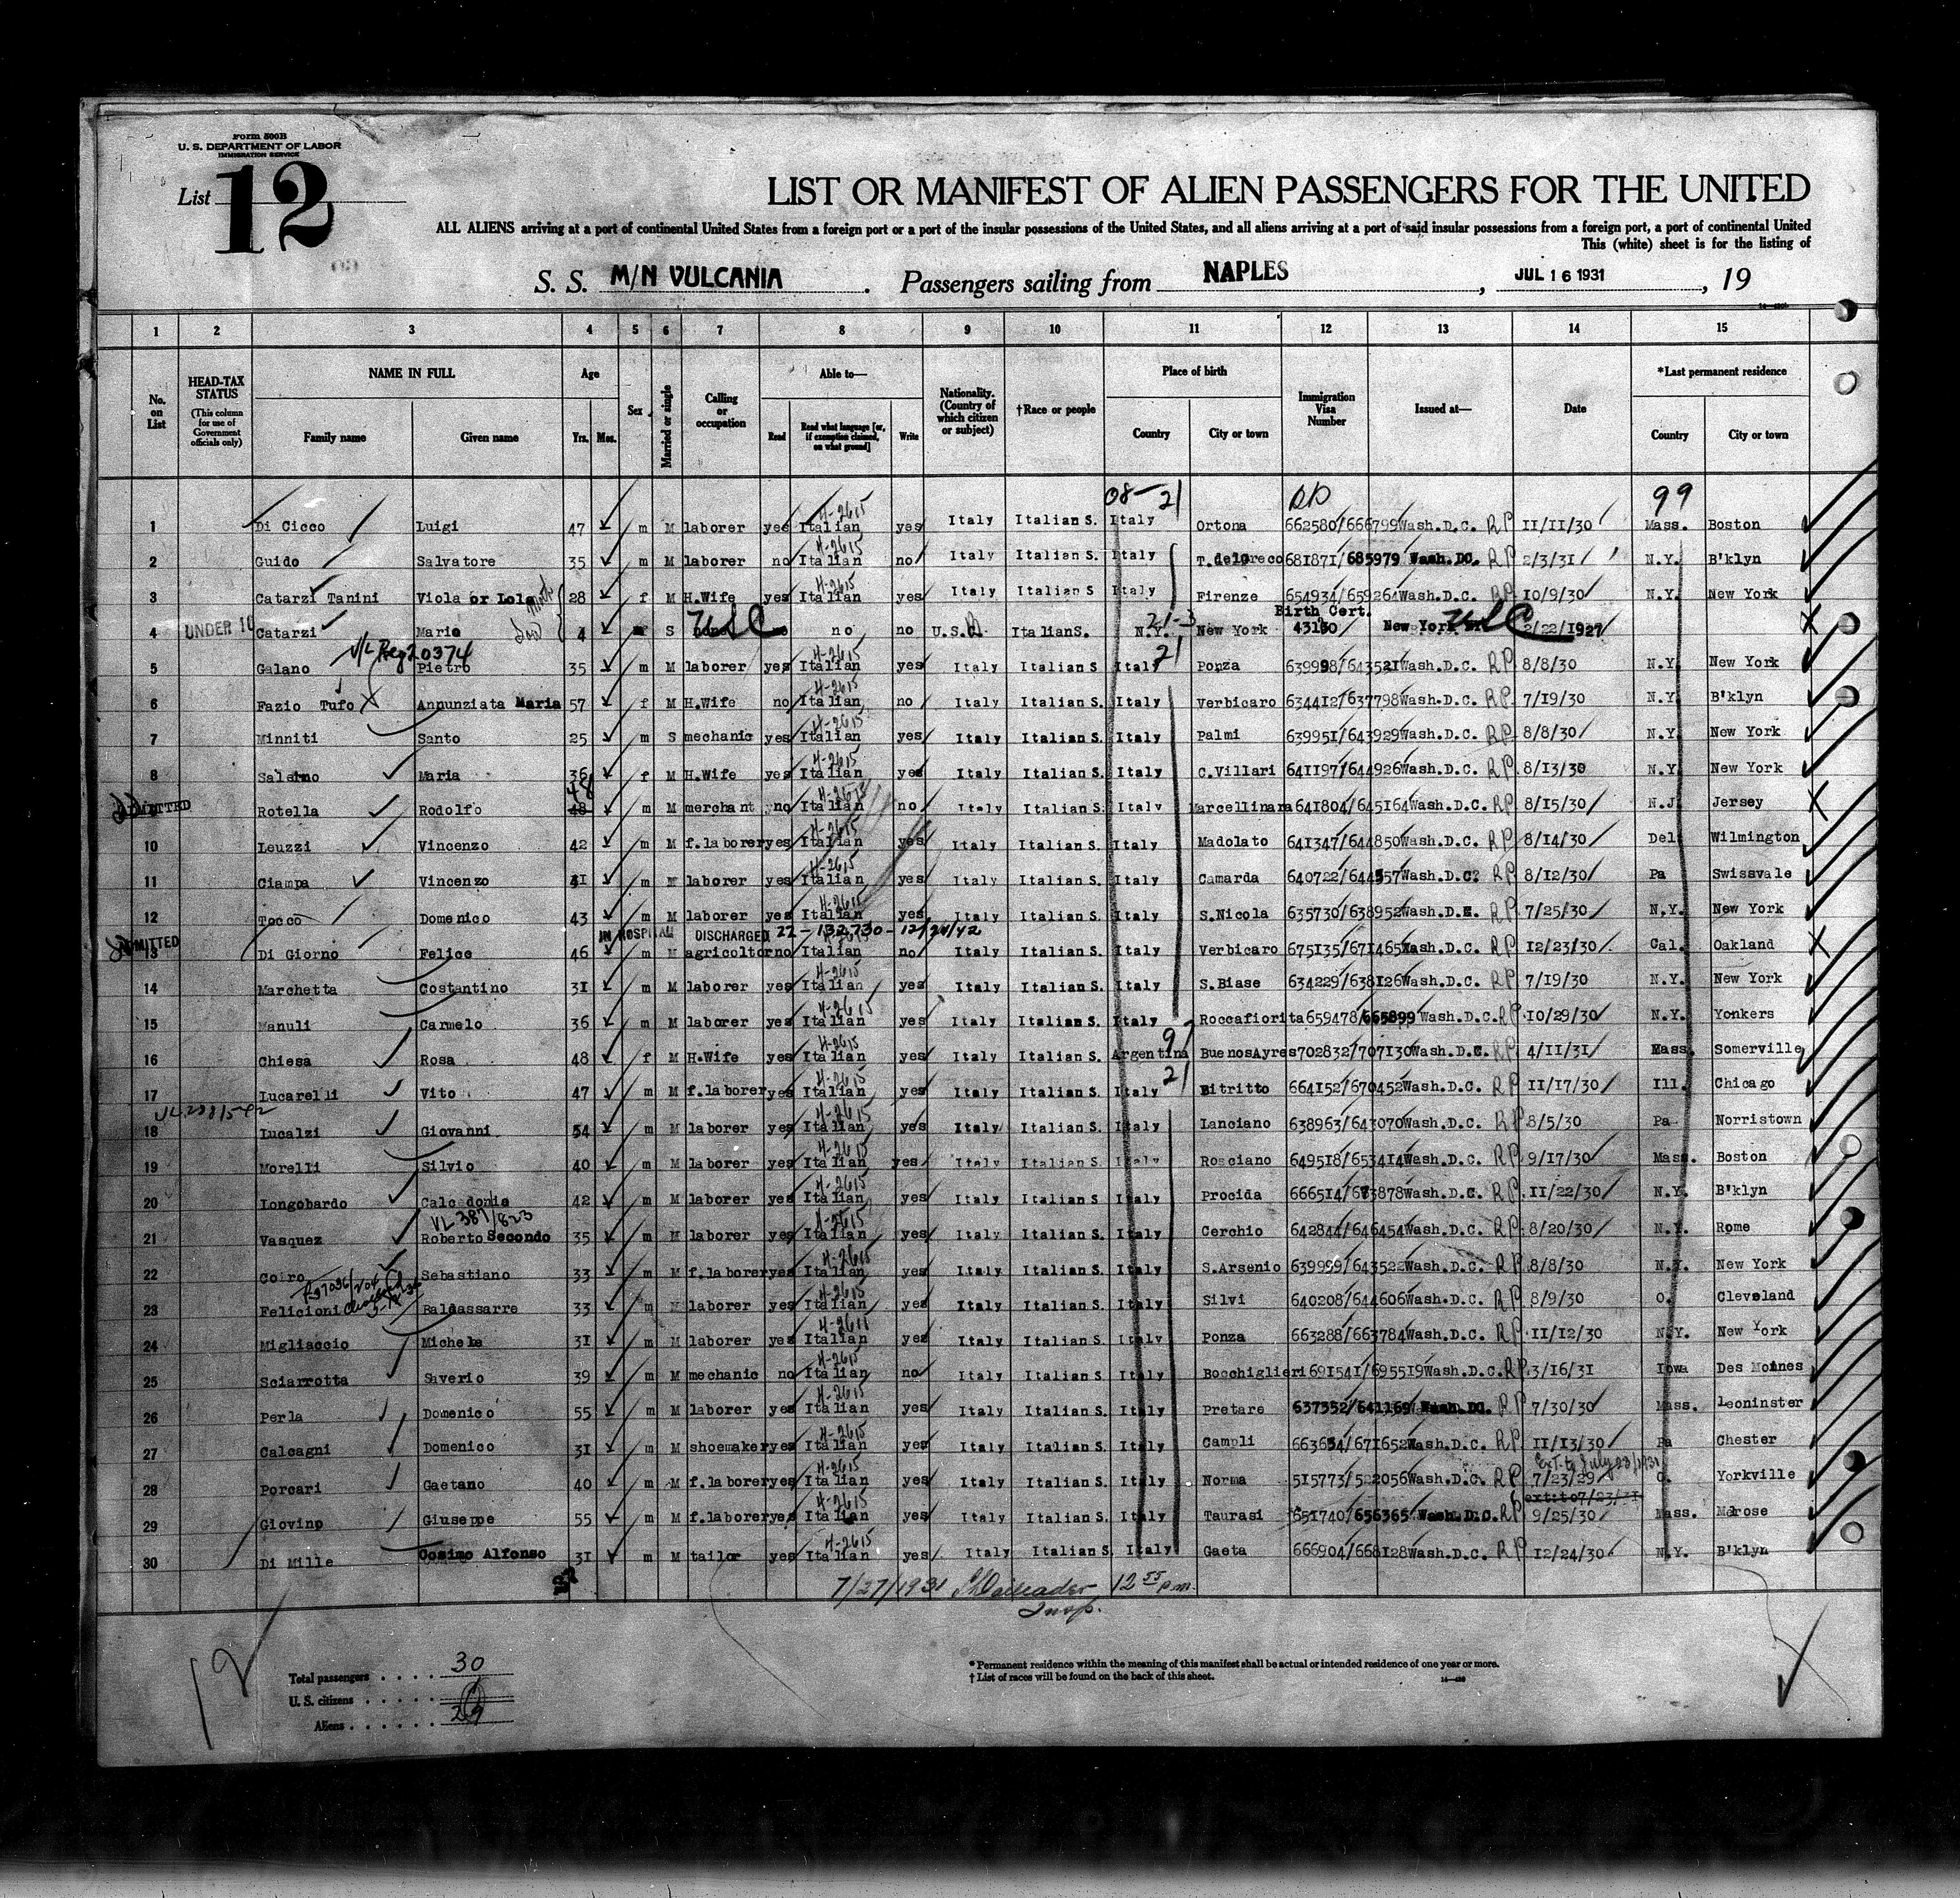 Form 500B
U. S. DEPARTMENT OF LABOR
IMMIGRATION SERVICE
List 12
LIST OR MANIFEST OF ALIEN PASSENGERS FOR THE UNITED
ALL ALIENS arriving at a port of continental United States from a foreign port or a port of the insular possessions of the United States, and all aliens arriving at a port of said insular possessions from a foreign port, a port of continental United
This (white) sheet is for the listing of
S. S. M/N VULCANIA. Passengers sailing from NAPLES, JUL 16 1931, 19
1 2 3 4 5 6 7 8 9 10 11 12 13 14 15
No. on List
HEAD-TAX STATUS (This column for use of Government officials only)
NAME IN FULL Family name Given name
Age Yrs. Mos.
Sex
Married or single
Calling or occupation
Able to— Read Read what language [or, if exemption claimed, on what ground] Write
Nationality. (Country of which citizen or subject)
†Race or people
Place of birth Country City or town
Immigration Visa Number
Issued at—
Date
*Last permanent residence Country City or town
08- 21 99
1 Di Cicco Luigi 47 m M laborer yes Italian H-2615 yes Italy Italian S. Italy Ortona 662580/666799 Wash.D.C. RP 11/11/30 Mass. Boston
2 Guido Salvatore 35 m M laborer no Italian H-2615 no Italy Italian S. Italy T.delGreco 681871/685979 Wash.DC. RP 2/3/31 N.Y. B'klyn
3 Catarzi Tanini Viola or Lola 28 f M H.Wife yes Italian H-2615 yes Italy Italian S. Italy Firenze 654934/659264 Wash.D.C. RP 10/9/30 N.Y. New York
4 UNDER 10 Catarzi Mario 4 S USC no no U.S.A. Italian S. N.Y. New York Birth Cert. 43150 New York USC 2/22/1927
V/L Reg 20374
5 Galano Pietro 35 m M laborer yes Italian H-2615 yes Italy Italian S. Italy Ponza 639998/643521 Wash.D.C. RP 8/8/30 N.Y. New York
6 Fazio Tufo Annunziata Maria 57 f M H.Wife no Italian H-2615 no Italy Italian S. Italy Verbicaro 634412/637798 Wash.D.C. RP 7/19/30 N.Y. B'klyn
7 Minniti Santo 25 m S mechanic yes Italian H-2615 yes Italy Italian S. Italy Palmi 639951/643929 Wash.D.C. RP 8/8/30 N.Y. New York
8 Salerno Maria 36 f M H.Wife yes Italian H-2615 yes Italy Italian S. Italy C.Villari 641197/644926 Wash.D.C. RP 8/13/30 N.Y. New York
ADMITTED Rotella Rodolfo 48 m M merchant no Italian H-2615 no Italy Italian S. Italy Marcellinara 641804/645164 Wash.D.C. RP 8/15/30 N.J. Jersey
10 Leuzzi Vincenzo 42 m M f.laborer yes Italian H-2615 yes Italy Italian S. Italy Madolato 641347/644850 Wash.D.C. RP 8/14/30 Del Wilmington
11 Ciampa Vincenzo 31 m M laborer yes Italian H-2615 yes Italy Italian S. Italy Camarda 640722/644557 Wash.D.C. RP 8/12/30 Pa Swissvale
12 Tocco Domenico 43 m M laborer yes Italian H-2615 yes Italy Italian S. Italy S.Nicola 635730/638952 Wash.D.C. RP 7/25/30 N.Y. New York
IN HOSPITAL DISCHARGED 22-132730-12/24/42
ADMITTED 13 Di Giorno Felice 46 m M agricoltor no Italian no Italy Italian S. Italy Verbicaro 675135/671465 Wash.D.C. RP 12/23/30 Cal. Oakland
14 Marchetta Costantino 31 m M laborer yes Italian H-2615 yes Italy Italian S. Italy S.Biase 634229/638126 Wash.D.C. RP 7/19/30 N.Y. New York
15 Manuli Carmelo 36 m M laborer yes Italian H-2615 yes Italy Italian S. Italy Roccafiorita 659478/665899 Wash.D.C. RP 10/29/30 N.Y. Yonkers
16 Chiesa Rosa 48 f M H.Wife yes Italian H-2615 yes Italy Italian S. Argentina BuenosAyres 702832/707130 Wash.D.C. RP 4/11/31 Mass. Somerville
17 Lucarelli Vito 47 m M f.laborer yes Italian H-2615 yes Italy Italian S. Italy Bitritto 664152/670452 Wash.D.C. RP 11/17/30 Ill. Chicago
18 Lucalzi Giovanni 54 m M laborer yes Italian H-2615 yes Italy Italian S. Italy Lanciano 638963/643070 Wash.D.C. RP 8/5/30 Pa Norristown
19 Morelli Silvio 40 m M laborer yes Italian H-2615 yes Italy Italian S. Italy Rosciano 649518/653414 Wash.D.C. RP 9/17/30 Mass. Boston
20 Longobardo Calcedonio 42 m M laborer yes Italian H-2615 yes Italy Italian S. Italy Procida 666514/673878 Wash.D.C. RP 11/22/30 N.Y. B'klyn
VL 387/823
21 Vasquez Roberto Secondo 35 m M laborer yes Italian H-2615 yes Italy Italian S. Italy Cerchio 642844/646454 Wash.D.C. RP 8/20/30 N.Y. Rome
22 Coiro Sebastiano 33 m M f.laborer yes Italian H-2615 yes Italy Italian S. Italy S.Arsenio 639999/643522 Wash.D.C. RP 8/8/30 N.Y. New York
23 Felicioni Baldassarre 33 m M laborer yes Italian H-2615 yes Italy Italian S. Italy Silvi 640208/644606 Wash.D.C. RP 8/9/30 O. Cleveland
24 Migliaccio Michele 31 m M laborer yes Italian yes Italy Italian S. Italy Ponza 663288/663784 Wash.D.C. RP 11/12/30 N.Y. New York
25 Sciarrotta Saverio 39 m M mechanic no Italian H-2615 no Italy Italian S. Italy Bocchiglieri 691541/695519 Wash.D.C. RP 3/16/31 Iowa Des Moines
26 Perla Domenico 55 m M laborer yes Italian H-2615 yes Italy Italian S. Italy Pretare 637352/641169 Wash.DC. RP 7/30/30 Mass. Leoninster
27 Calcagni Domenico 31 m M shoemaker yes Italian H-2615 yes Italy Italian S. Italy Campli 663654/671652 Wash.D.C. RP 11/13/30 Pa Chester
Ext. to July 23/1931
28 Porcari Gaetano 40 m M f.laborer yes Italian H-2615 yes Italy Italian S. Italy Norma 515773/522056 Wash.D.C. RP 7/23/29 O. Yorkville
29 Giovino Giuseppe 55 m M f.laborer yes Italian H-2615 yes Italy Italian S. Italy Taurasi 651740/656365 Wash.D.C. RP 9/25/30 Mass. Melrose
30 Di Mille Cosimo Alfonso 31 m M tailor yes Italian H-2615 yes Italy Italian S. Italy Gaeta 666904/668128 Wash.D.C. RP 12/24/30 N.Y. B'klyn
7/27/1931 12 55 p.m.
Insp.
12
Total passengers . . . . 30
U. S. citizens . . . . . 1
Aliens . . . . . . 29
* Permanent residence within the meaning of this manifest shall be actual or intended residence of one year or more.
† List of races will be found on the back of this sheet.